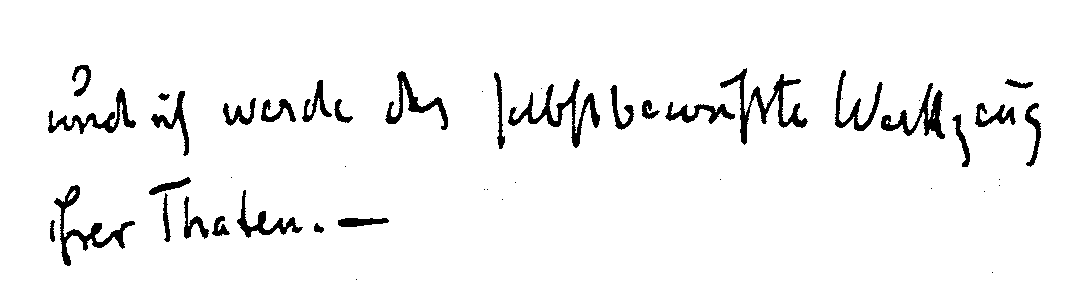 und ich werde das selbstbewußte Werkzeug
ihrer Thaten. —